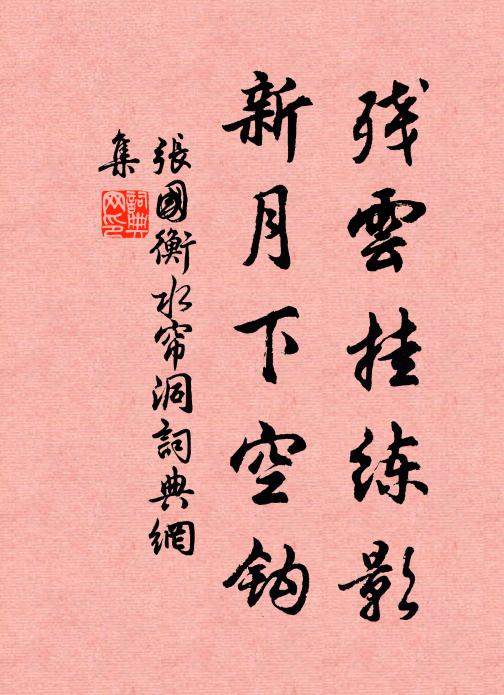 残雲挂练影
新月下空钩
張國衡水帘洞詞典網
集
詞典网印